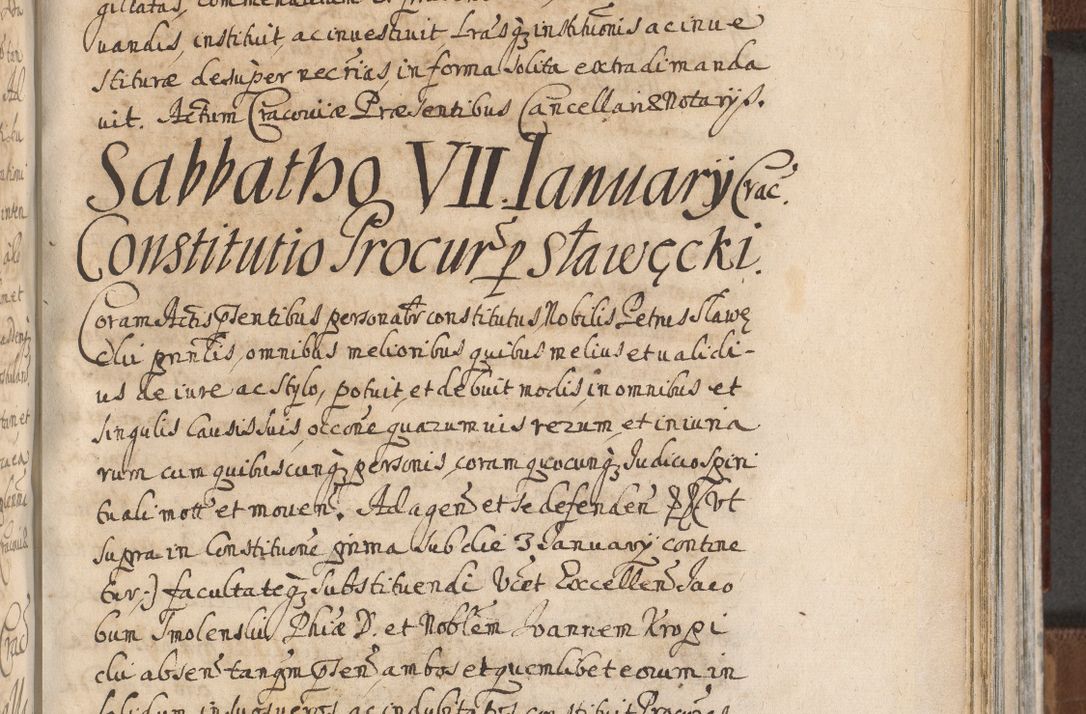 uandis, instituit, ac inuestiuit, Lrasq́ institiuonis ac inue
stituræ desuper necr̃ias, in forma solita extradi manda
uit. Actum Cracouiæ Præsentibus Cancellari & Notarijs.
Sabbatho VII. Ianuarÿ Crac̃.
Constitutio Procur̃ p Sławęcki.
Coram Actis p̃sentibus personalr̃ constitutus Nobilis Petrus Sławę
cki gñalis, omnibus melioribus quibus melius et ualidi-
us de iure ac stylo, potuit, et debuit modis, in omnibus et
singulis Causis suis, occõne quarumuis rerum, et iniuria
rum cum quibuscunq́ personis, coram quocunq́ Iudicio spiri
tuali mott et mouen̄. Ad agen̄ et se defenden̄ Vt
supra in Constituõne prima sub die 3 Ianuarÿ contine
tur:) facultateq́ substituendi Vc̃et Excellen̄ Iaco
bum Smolenski Phiæ D. et Nobl̃em Ioannem Kropi
cki absen̄ tanq̃m p̃sen̄ ambos et quemlibet eorum in
solidum, in suos ueros, ac indubitatos constituit Procur̃es